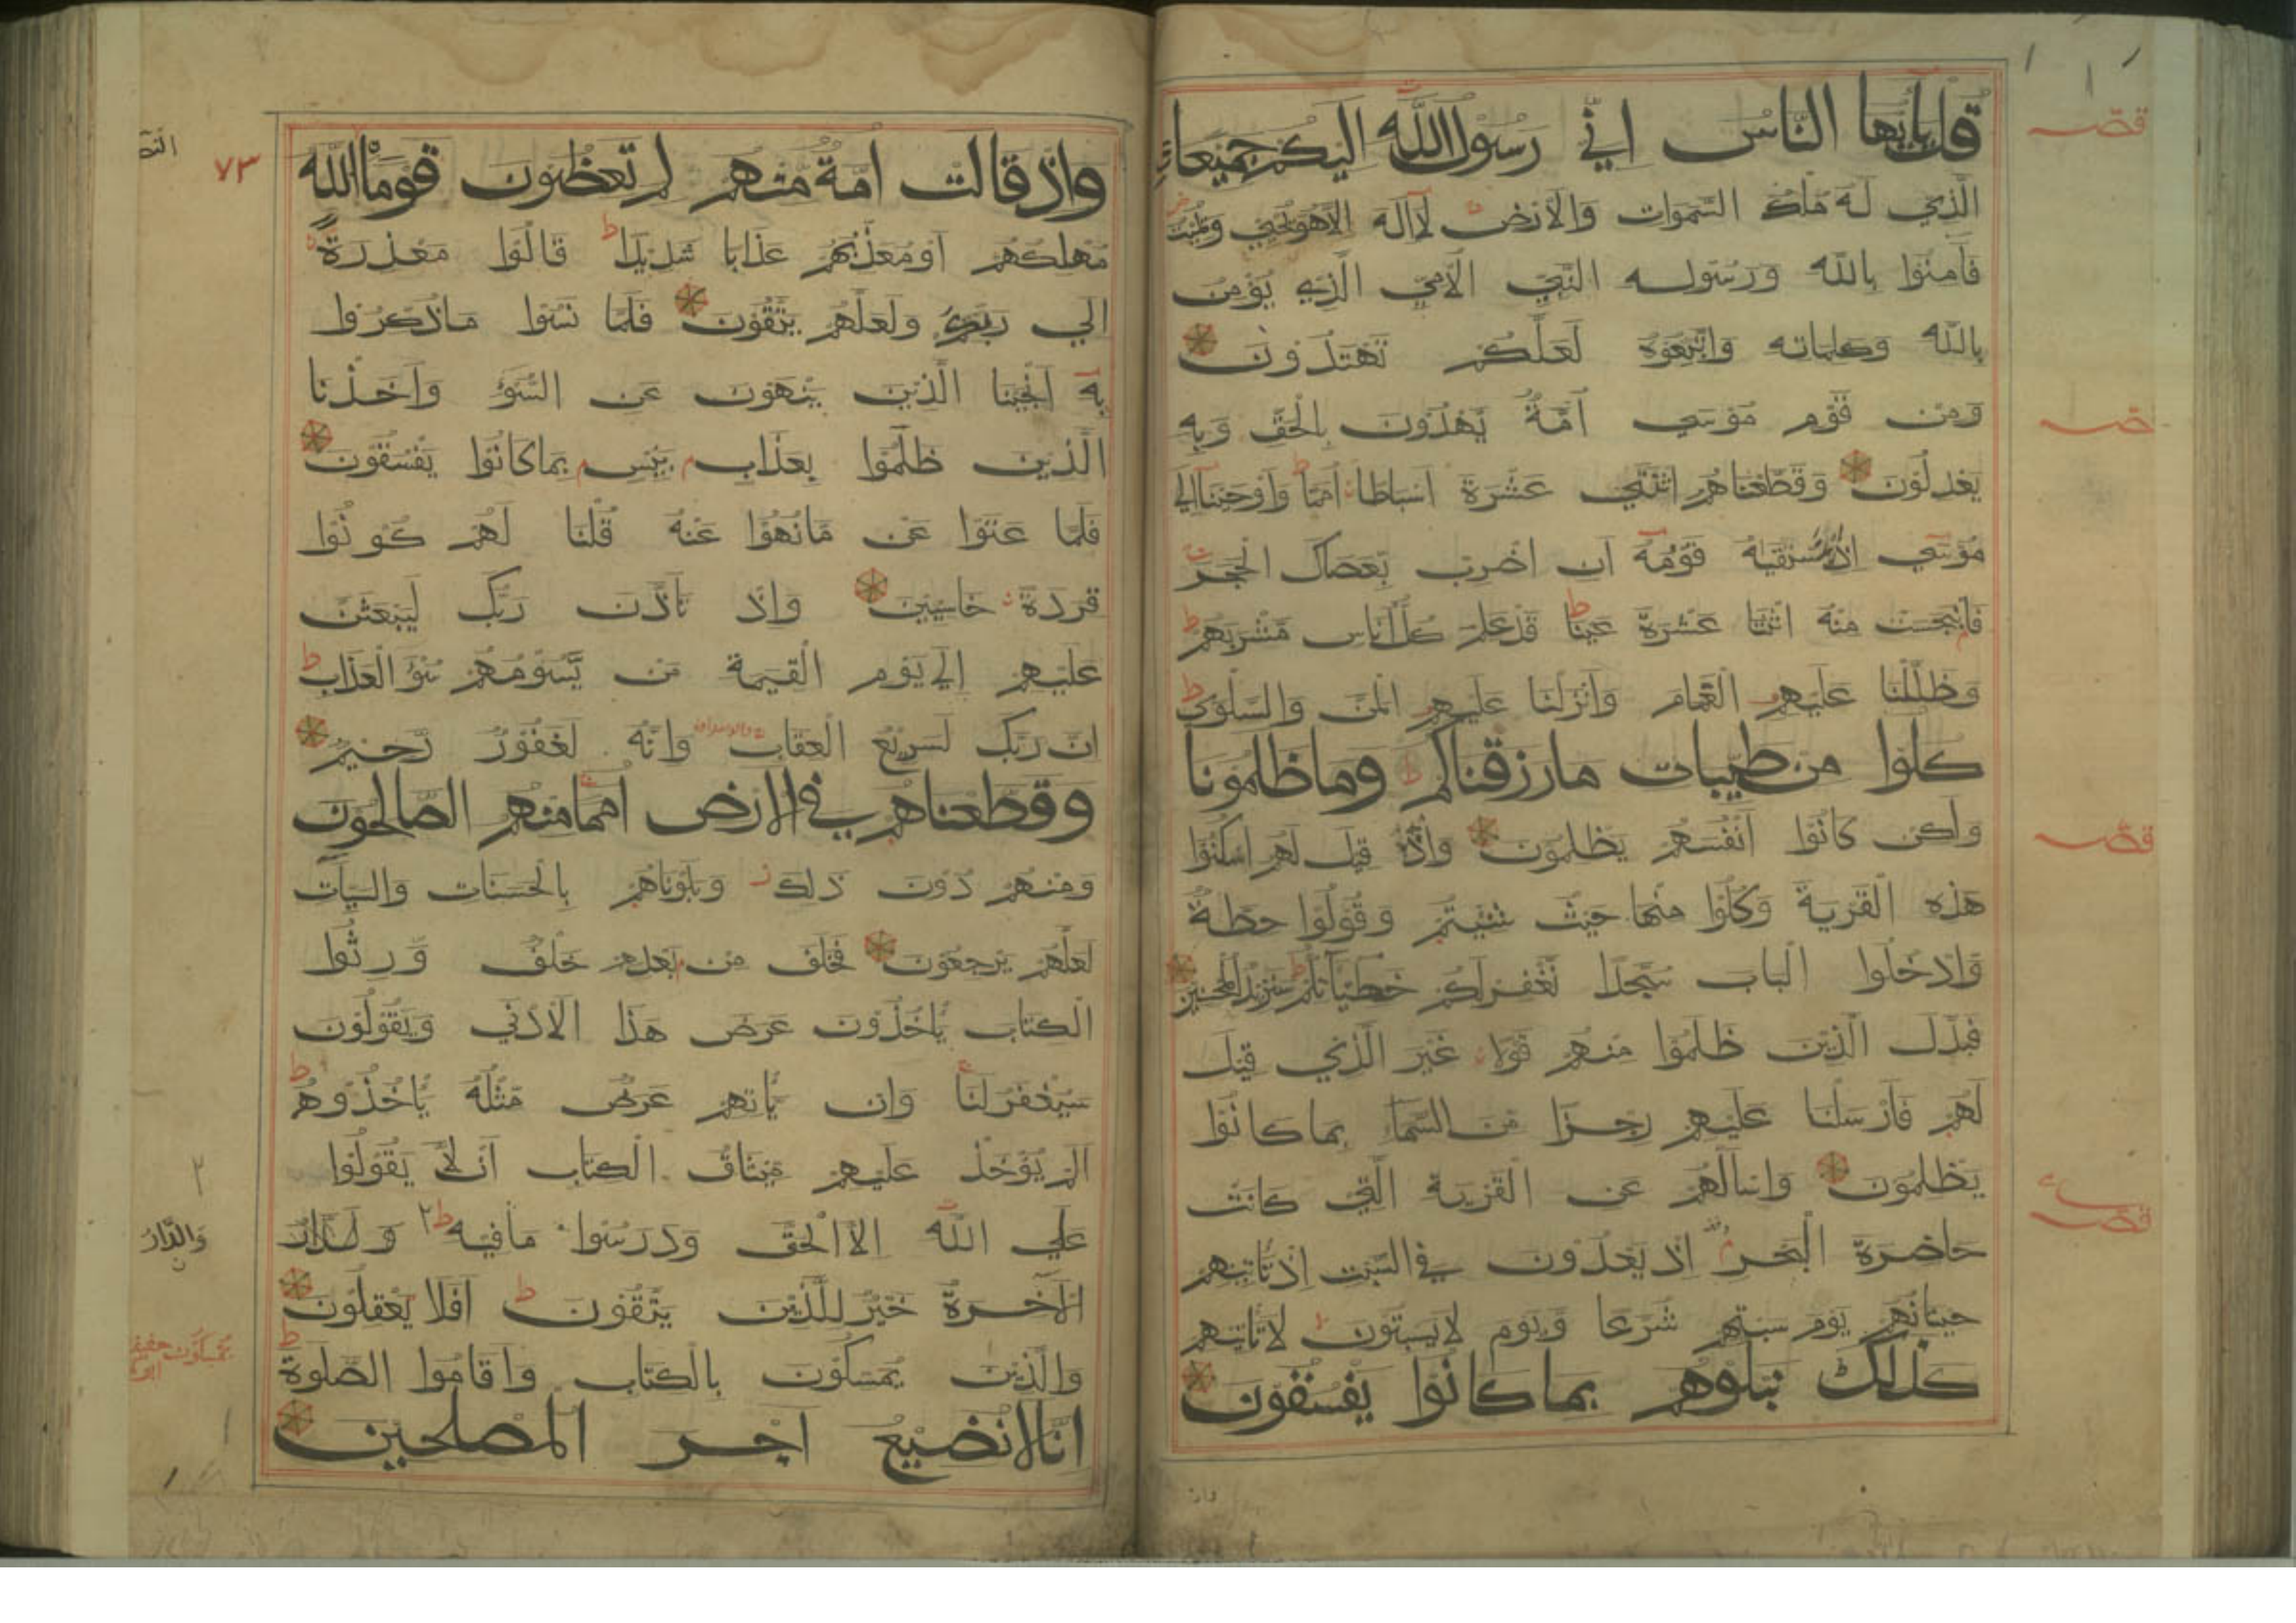 قل يايها الناس اني رسول الله اليكم جميعا
الذي له ملك السموات والارض لا اله الا هو يحيي ويميت
فامنوا بالله ورسوله النبي الامي الذي يؤمن
بالله وكلماته واتبعوه لعلكم تهتدون
ومن قوم موسي امة يهدون بالحق وبه
يعدلون وقطعناهم اثنتي عشرة اسباطا امما واوحينا الي
موسي اذ استسقيه قومه ان اضرب بعصاك الحجر
فانبجست منه اثنتا عشرة عينا قد علم كل اناس مشربهم
وظللنا عليهم الغمام وانزلنا عليهم المن والسلوي
كلوا من طيبات ما رزقناكم وما ظلمونا
ولكن كانوا انفسهم يظلمون واذ قيل لهم اسكنوا
هذه القرية وكلوا منها حيث شئيتم وقولوا حطة
وادخلوا الباب سجدا نغفر لكم خطيئاتكم سنزيد المحسنين
فبدل الذين ظلموا منهم قولا غير الذي قيل
لهم فارسلنا عليهم رجزا من السماء بما كانوا
يظلمون واسالهم عن القرية التي كانت
حاضرة البحر اذ يعدون في السبت اذ تاتيهم
حيتانهم يوم سبتهم شرعا ويوم لا يسبتون لا تاتيهم
كذلك نبلوهم بما كانوا يفسقون
واذ قالت امة منهم لم تعظون قوما الله
مهلكهم او معذبهم عذابا شديدا قالوا معذرة
الي ربكم ولعلهم يتقون فلما نسوا ما ذكروا
به انجينا الذين ينهون عن السوء واخذنا
الذين ظلموا بعذاب بئيس بما كانوا يفسقون
فلما عتوا عن ما نهوا عنه قلنا لهم كونوا
قردة خاسيين واذ تاذن ربك ليبعثن
عليهم الي يوم القيمة من يسومهم سوء العذاب
ان ربك لسريع العقاب وانه لغفور رحيم
وقطعناهم في الارض امما منهم الصالحون
ومنهم دون ذلك وبلوناهم بالحسنات والسيات
لعلهم يرجعون فخلف من بعدهم خلف ورثوا
الكتاب ياخذون عرض هذا الادني ويقولون
سيغفر لنا وان ياتهم عرض مثله ياخذوه
الم يؤخذ عليهم ميثاق الكتاب ان لا يقولوا
علي الله الا الحق ودرسوا ما فيه ط ٢ ولدار
الاخرة خير للذين يتقون افلا يعقلون
والذين يمسكون بالكتاب واقاموا الصلوة
انا لا نضيع اجر المصلحين
٧٣
والدار